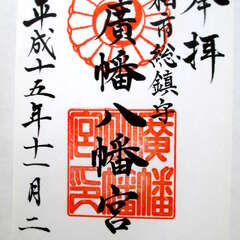 奉拝
柏市総鎮守
廣幡八幡宮
平成十五年十一月二
廣幡八幡宮印